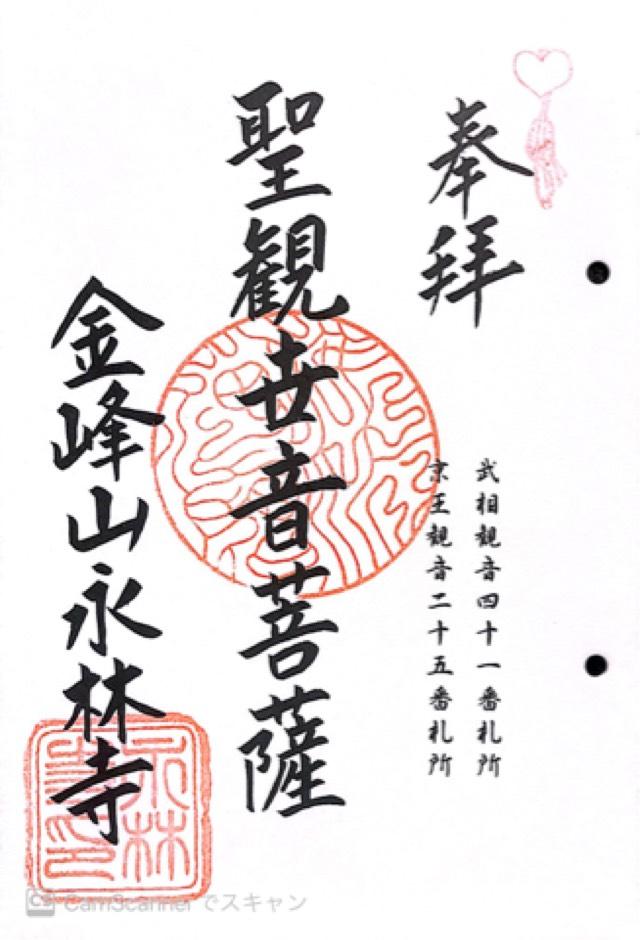 奉拝
武相観音四十一番札所
京王観音二十五番札所
聖観世音菩薩
金峰山永林寺
CamScanner でスキャン